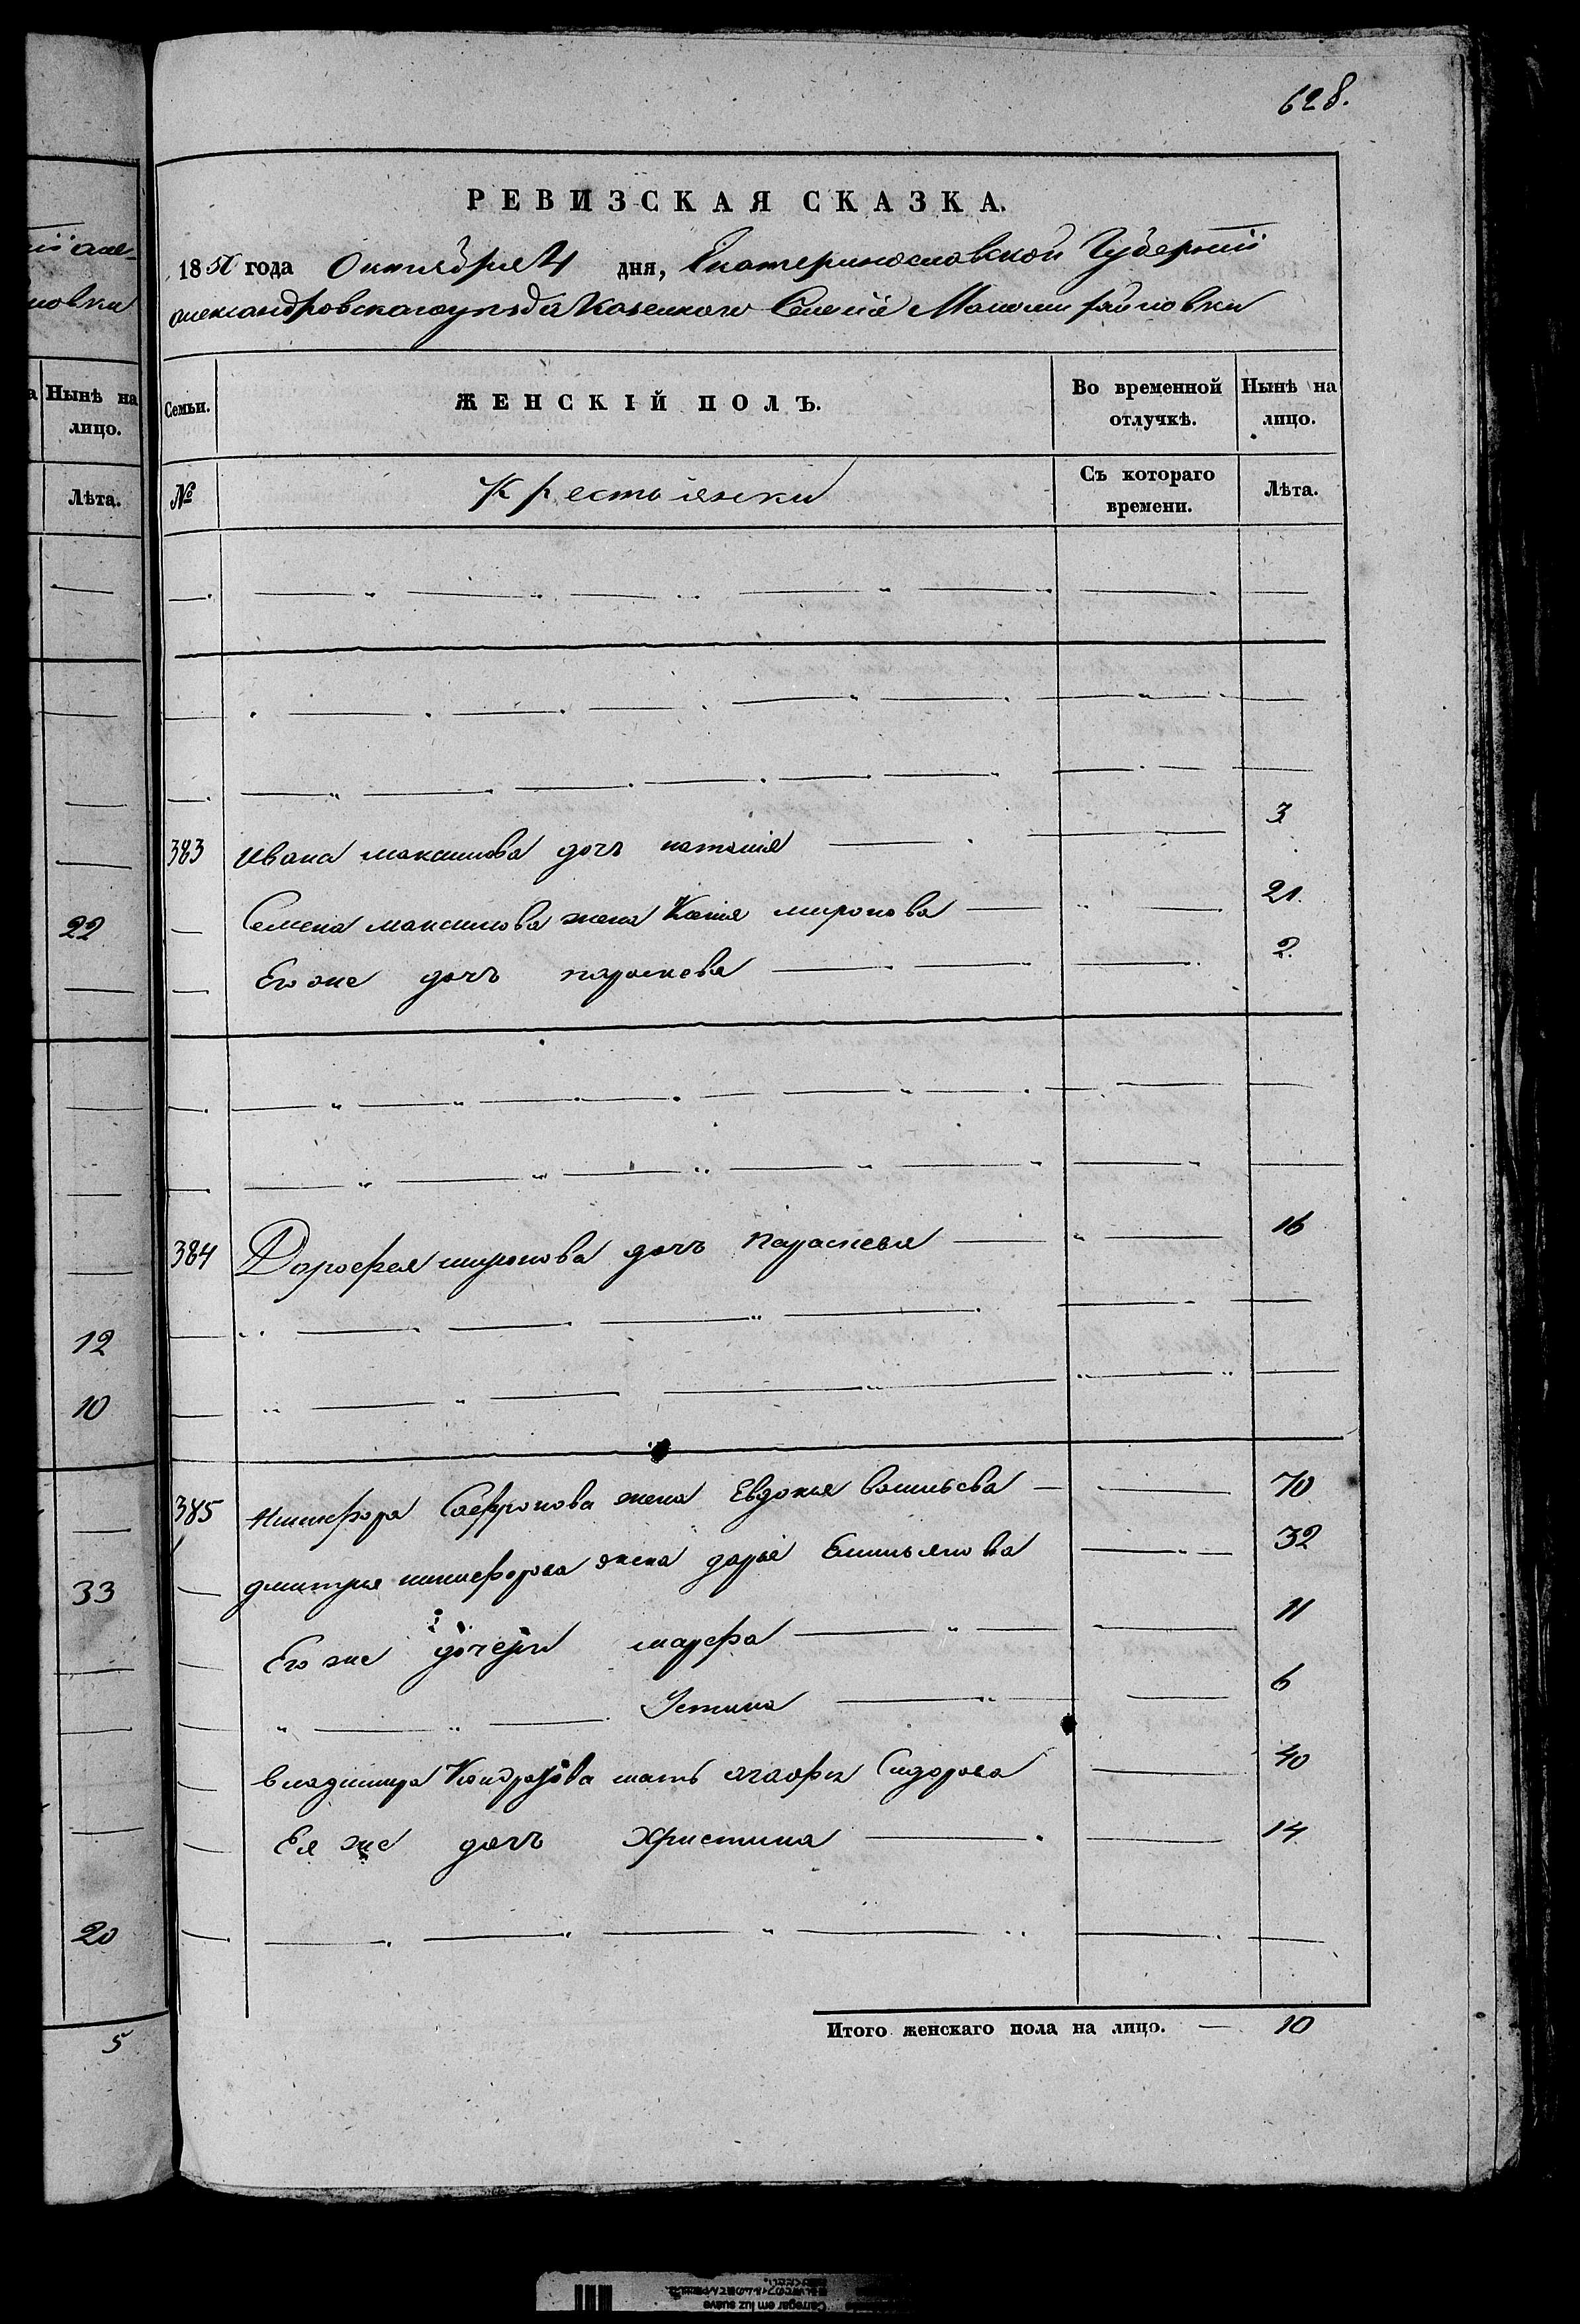 628.
РЕВИЗСКАЯ СКАЗКА.
1850 года Октября 4 дня, Екатеринославской Губернiи
александровского уезда Казенного Селенiя Маломихайловки
Семьи.
ЖЕНСКIЙ ПОЛЪ.
Во временной отлучкѣ.
Нынѣ на лицо.
№
Крестьянки
Съ котораго времени.
Лѣта.
383 Ивана максимова дочь наталiя 3
Семена максимова жена Ксенiя миронова 21.
Его же дочь параскева 2.
384 Дорофея миронова дочь параскева 16
385 Никифора Сафронова жена Евдокия васильева 70
дмитрия никифорова жена дарья Емильянова 32
Его же дочери марфа 11
Устина 6
владимира мать агафия Сидорова 40
Ея же дочь христина 14
Итого женскаго пола на лицо. 10
новки
а Нынѣ на лицо.
Лѣта.
22
12
10
33
20
5
Carregar em luz suave